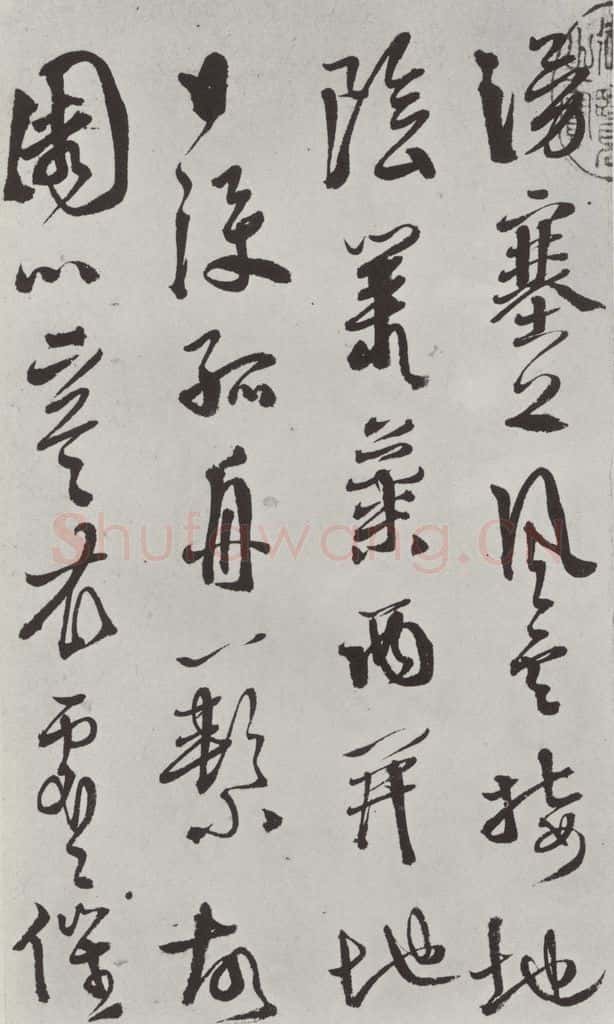 湧塞上風雲接地
陰叢菊兩開他
日淚孤舟一繫故
園心寒衣處々催
Shufawang.CN